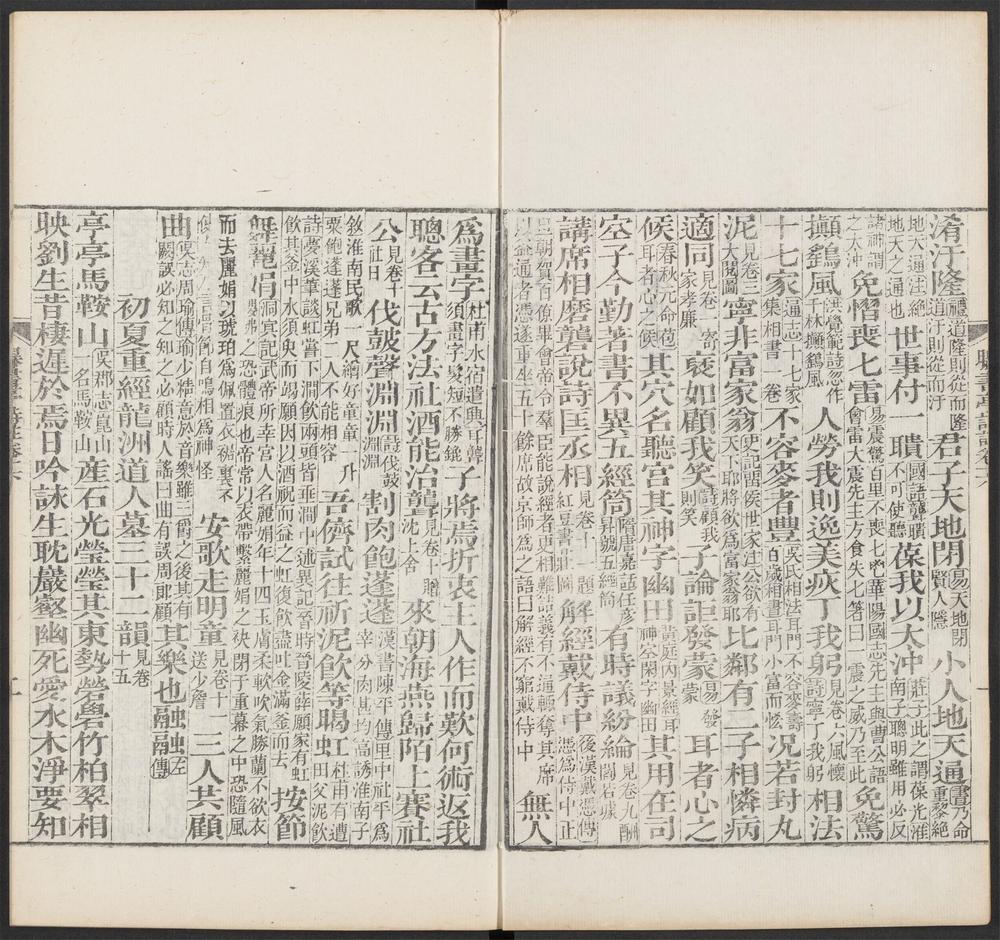 淆汙隆禮道隆則從而隆道汙則從而汙君子天地閉易天地閉賢人隱小人地天通書乃命重黎絕
地天通注絕地天之通也世事付一聵國語聾聵不可使聽葆我以太沖莊子此之謂葆光淮南子聰明雖用必反
諸神謂之太沖免慴喪七雷易震驚百里不喪七鬯華陽國志先主與曹公語會雷大震先主方食失七箸曰一震之威乃至此免驚
攧鷂風洪覺範詩忽作千林攧鷂風人勞我則逸美疢丁我躬見卷六風懷詩寧丁我躬相法
十七家通志十七家集相書一卷不容麥者豐吳氏相法耳門不容麥壽百歲相書耳門小富而恡况若封丸
泥見卷三大閱圖寧非富家翁史記留侯世家注公欲有天下耶將欲為富家翁耶比鄰有二子相憐病
適同見卷寄家孝廉裒如顧我笑詩顧我則笑子論詎發蒙易發蒙耳者心之
候春秋元命苞耳者心之候其穴名聽宮其神字幽田黃庭內景經耳神空閑字幽田其用在司
空子今勤著書不異五經笥隋唐嘉話任彥昇號五經笥有時議紛綸見卷九酬閻若璩
講席相磨礱說詩匡丞相見卷十一題紅豆書莊圖解經戴侍中後漢戴憑傳憑為侍中正
旦朝賀百僚畢會帝令羣臣能說經者更相難詰義有不通輒奪其席以益通者憑遂重坐五十餘席故京師為之語曰解經不窮戴侍中無人
為畫字杜甫水宿遣興耳聾須畫字髮短不勝篸子將焉折衷主人作而歎何術返我
聰客云古方法社酒能治聾見卷十贈沈上舍來朝海燕歸陌上賽社
公見卷十社日伐鼓聲淵淵詩伐鼓淵淵割肉飽蓬蓬漢書陳平傳里中社平為宰分肉甚均高誘淮南子
敘淮南民歌一尺繒好童童一升粟飽蓬蓬兄弟二人不能相容吾儕試往祈泥飲等暍虹杜甫有遭田父泥飲
詩夢溪筆談虹嘗下澗飲兩頭皆垂澗中述異記晉時晉陵薛願家有虹飲其釜中水須臾而竭願因以酒祝而益之虹復飲盡吐金滿釜而去按節
舞麗娟洞冥記武帝所幸宮人名麗娟年十四玉膚柔軟吹氣勝蘭不欲衣纓拂之恐體痕也帝常以衣帶繫麗娟之袂閉于重幕之中恐隨風
而去麗娟以琥珀為佩置衣裾裏不使人知乃言骨節自鳴相為神怪安歌走明童見卷十一送少詹三人共顧
曲吳志周瑜傳瑜少精意於音樂雖三爵之後其有闕誤必知之知之必顧時人謠曰曲有誤周郎顧其樂也融融左傳
初夏重經龍洲道人墓三十二韻見卷十五
亭亭馬鞍山吳郡志崑山一名馬鞍山產石光瑩瑩其東勢嶨嶨竹柏翠相
映劉生昔棲遲於焉日吟詠生耽巖壑幽死愛水木淨要知